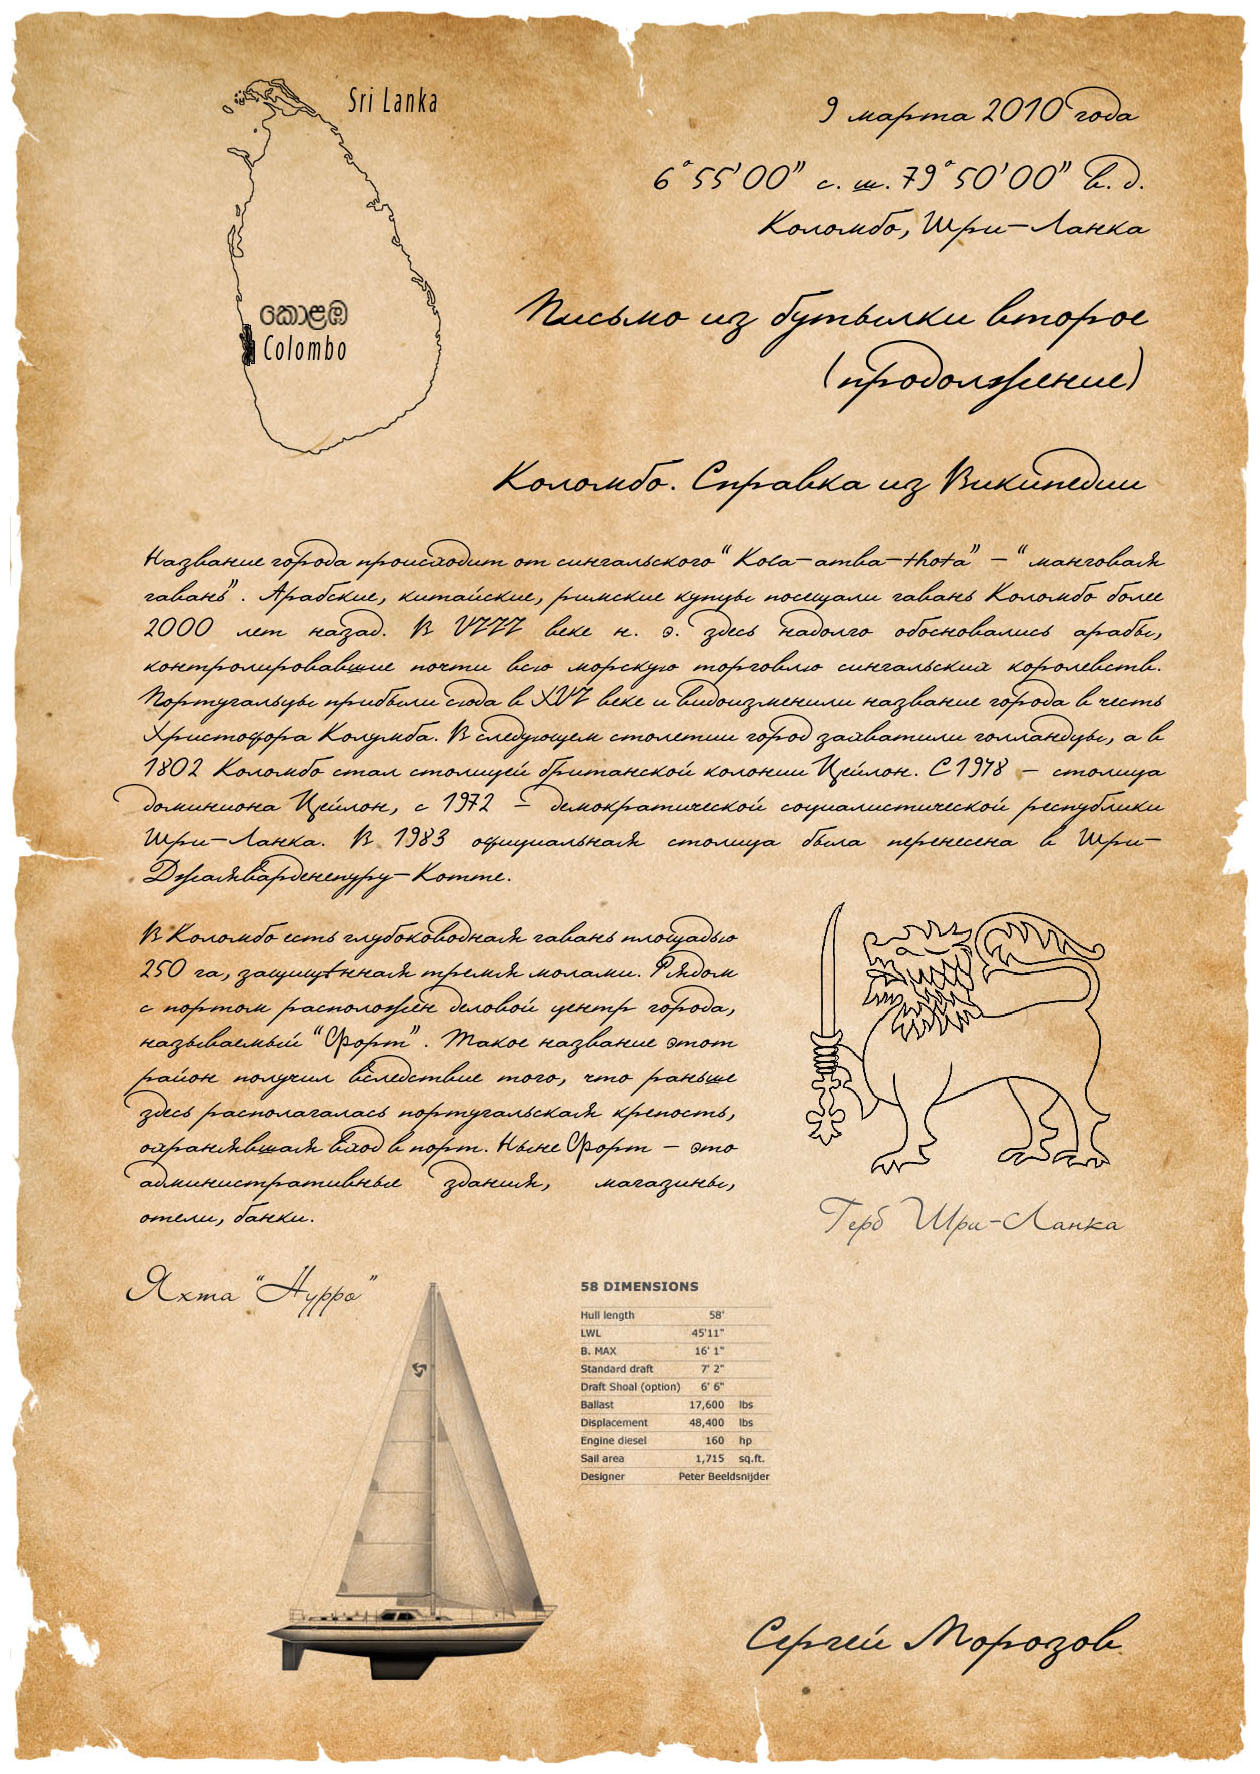 Sri Lanka
9 марта 2010 года
6°55'00" с. ш. 79°50'00" в. д.
Коломбо, Шри-Ланка
කොළඹ
Colombo
Письмо из бутылки второе
(продолжение)
Коломбо. Справка из Википедии
Название города происходит от сингальского "Kola-amba-thota" - "манговая
гавань". Арабские, китайские, римские купцы посещали гавань Коломбо более
2000 лет назад. В VIII веке н. э. здесь надолго обосновались арабы,
контролировавшие почти всю морскую торговлю сингальских королевств.
Португальцы прибыли сюда в XVI веке и видоизменили название города в честь
Христофора Колумба. В следующем столетии город захватили голландцы, а в
1802 Коломбо стал столицей британской колонии Цейлон. С 1948 - столица
доминиона Цейлон, с 1972 - демократической социалистической республики
Шри-Ланка. В 1983 официальная столица была перенесена в Шри-
Джаяварденепуру-Котте.
В Коломбо есть глубоководная гавань площадью
250 га, защищённая тремя молами. Рядом
с портом расположен деловой центр города,
называемый "Форт". Такое название этот
район получил вследствие того, что раньше
здесь располагалась португальская крепость,
охранявшая вход в порт. Ныне Форт - это
административные здания, магазины,
отели, банки.
Герб Шри-Ланка
Яхта "Hyppo"
58 DIMENSIONS
Hull length 58'
LWL 45'11"
B. MAX 16' 1"
Standard draft 7' 2"
Draft Shoal (option) 6' 6"
Ballast 17,600 lbs
Displacement 48,400 lbs
Engine diesel 160 hp
Sail area 1,715 sq.ft.
Designer Peter Beeldsnijder
Сергей Морозов